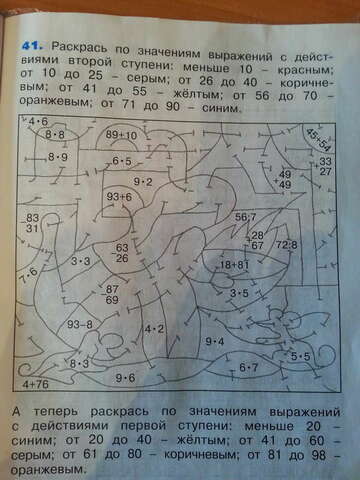 41. Раскрась по значениям выражений с дейст-
виями второй ступени: меньше 10 – красным;
от 10 до 25 – серым; от 26 до 40 – коричне-
вым; от 41 до 55 – жёлтым; от 56 до 70 –
оранжевым; от 71 до 90 – синим.
4•6
8•8
89+10
45+54
8•9
6•5
+33
27
9•2
49
+49
93+6
−83
31
56:7
+28
67
63
26
72:8
3•3
−18+81
7•6
87
69
3•5
93–8
4•2
9•4
8•3
5•5
6•7
4+76
9•6
А теперь раскрась по значениям выражений
с действиями первой ступени: меньше 20 –
синим; от 20 до 40 – жёлтым; от 41 до 60 –
серым; от 61 до 80 – коричневым; от 81 до 98 –
оранжевым.